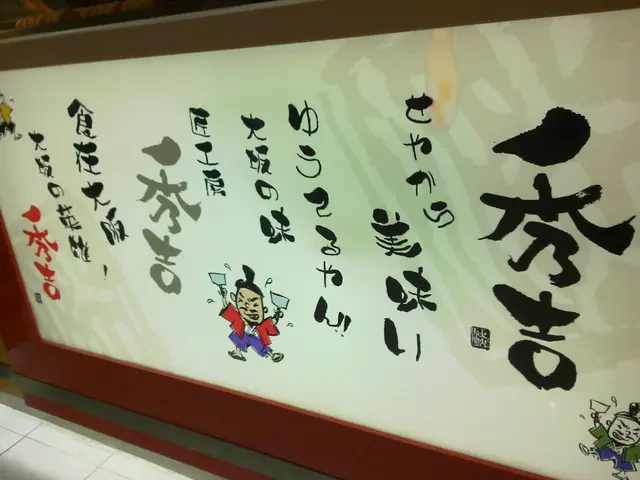 秀吉
せやから
美味い
ゆうてるやん!
大坂の味
匠工房
秀吉
食在大阪
大坂の英雄!
秀吉